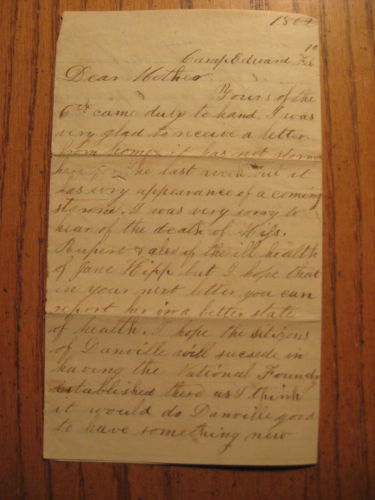 1862
10
Camp Edward Feb
Dear Mother
Yours of the
6th came duly to hand. I was
very glad to receive a letter
from home it has not stormed
here for the last week but it
has evry appearance of a coming
storm. I was very sorry to
hear of the death of Miss.
Rupert & also of the ill health
of Jane Hipp but I hope that
in your next letter you can
report her in a better state
of health. I hope the sitizens
of Danville will sucsede in
having the National Foundry
established there as I think
it would do Danville good
to have something new